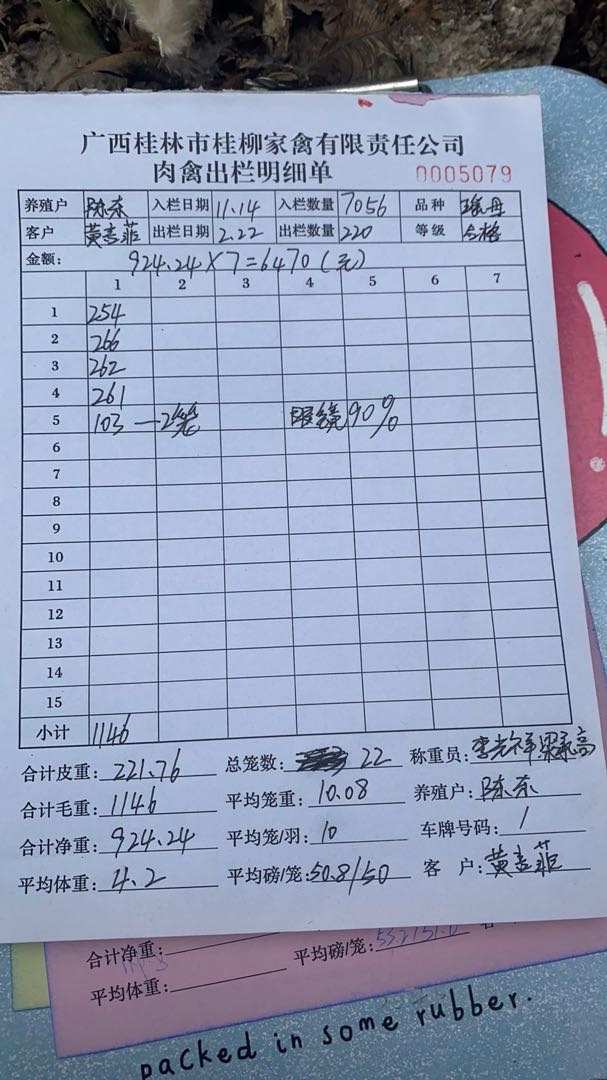 广西桂林市桂柳家禽有限责任公司
肉禽出栏明细单 0005079
养殖户 陈东 入栏日期 11.14 入栏数量 7056 品种
客户 黄吉菲 出栏日期 2.22 出栏数量 220 等级 合格
金额: 924.24×7=6470(元)
1 2 3 4 5 6 7
1 254
2 266
3 262
4 261
5 103 —2笼 眼镜90%
6
7
8
9
10
11
12
13
14
15
小计 1146
合计皮重: 221.76 总笼数: 22 称重员: 李光祥
合计毛重: 1146 平均笼重: 10.08 养殖户: 陈东
合计净重: 924.24 平均笼/羽: 10 车牌号码: 1
平均体重: 4.2 平均磅/笼: 50.8/50 客 户: 黄吉菲
合计净重:
平均磅/笼:
平均体重:
packed in some rubber.